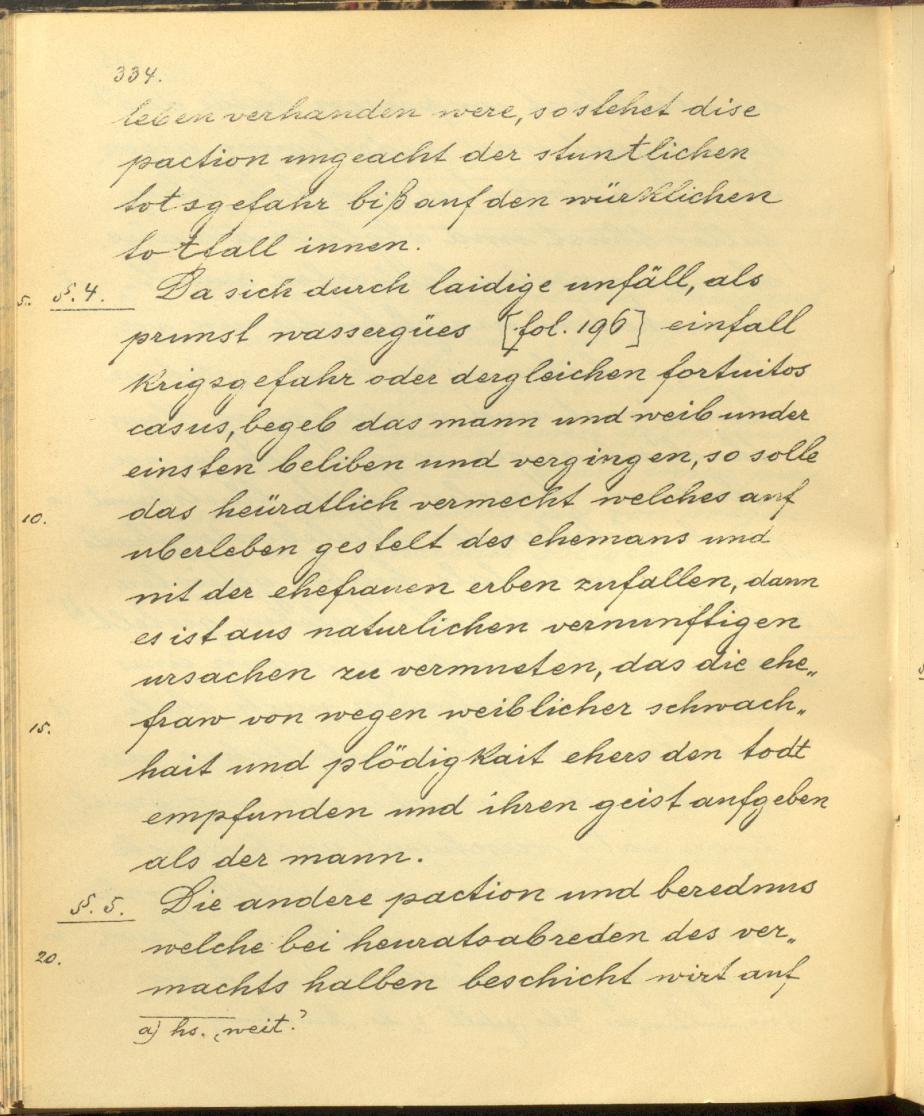 334.
leben verhanden were, so stehet dise
paction ungeacht der stuntlichen
totsgefahr biß auf den würklichen
totfall innen.
5. §. 4. Da sich durch laidige unfäll, als
prunst wassergües [fol. 196] einfall
krigsgefahr oder dergleichen fortuitos
casus, begeb das mann und weib under
einsten beliben und vergingen, so solle
10. das heüratlich vermecht welches auf
uberleben gestelt des ehemans und
nit der ehefrauen erben zufallen, dann
es ist aus naturlichen vernunftigen
ursachen zu vermueten, das die ehe„
15. fraw von wegen weiblicher schwach„
hait und plödigkait ehers den todt
empfunden und ihren geist aufgeben
als der mann.
§. 5. Die andere paction und berednus
20. welche bei heuratsabreden des ver„
machts halben beschicht wirt auf
a) hs. ‚weit.‘